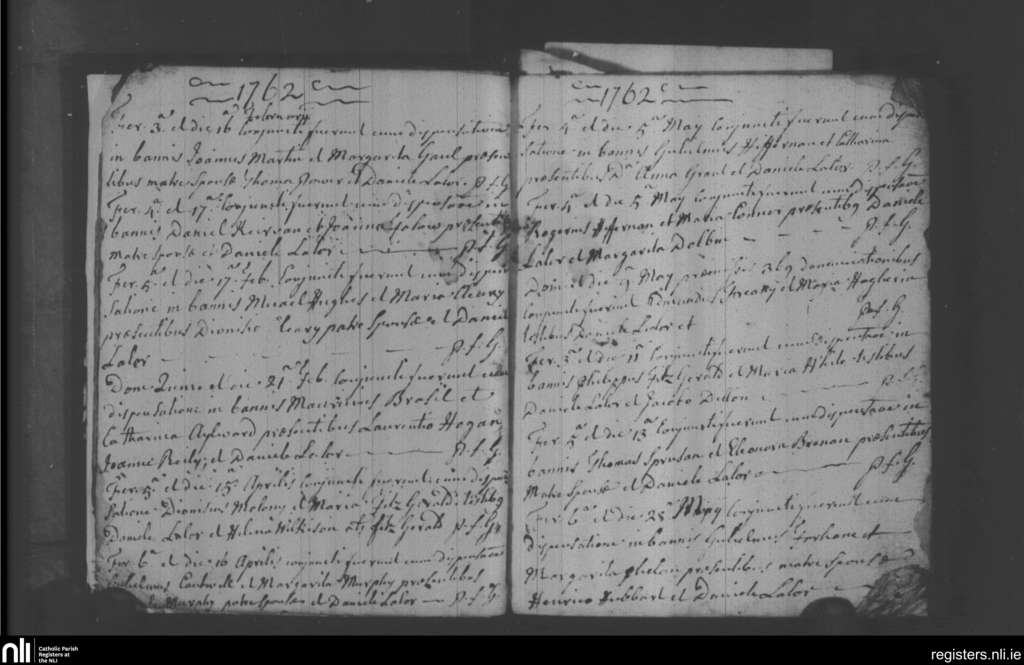 1762
Fer. 3ª et die 16ª Februarii Conjuncti fuerunt cum dispensatione
in bannis Joannes Martin et Margarita Gaul præsen
tibus matre Sponsæ Thoma Power et Daniele Lalor. P.f.G
Fer. 4ª et 17ª Conjuncti fuerunt cum dispensaõe in
bannis Daniel Keirvan et Joanna Lalor præsentib9
matre Sponsæ et Daniele Lalor P.f.G
Fer. 5ª et die 17ª Feb. Conjuncti fuerunt cum dispen
satione in bannis Micael Hughes et Maria Cleary
præsentibus Dionisio Cleary patre Sponsæ et Daniele
Lalor P.f.G
Dom. et die 21ª Feb. Conjuncti fuerunt cum
dispensatione in bannis Mauritius Brasil et
Catharina Aylward præsentibus Laurentio Hogan
Joanne Reily, et Daniele Lalor P.f.G
Fer. 5ª et die 15ª Aprilis Conjuncti fuerunt cum dispen
satione Dionisius Molony et Maria Fitz Gerald: testib9
Daniele Lalor et Helena Wilkison Fitz Gerald P.f.G
Fer. 6ª et die 16 Aprilis conjuncti fuerunt cum dispensaõe
Gulielmus et Margarita Murphy præsentibus
Murphy patre Sponsæ et Daniele Lalor P.f.G
1762
Fer. 4ª et die 5ª May Conjuncti fuerunt cum dispen
satione in bannis Gulielmus Heffernan et Catharina
præsentibus Dª Anna Grant et Daniele Lalor P.f.G.
Fer. 4ª et die 5ª May Conjuncti fuerunt cum dispensaõe
Rogerus Heffernan et Maria Connor præsentib9 Daniele
Lalor et Margarita Dalbur P.f.G.
Dom. et die 9ª May præmissis 3b9 denunciationibus
conjuncti fuerunt Edmundus et Maria
testibus Daniele Lalor et P.f.G.
Fer. 3ª et die 11 Conjuncti fuerunt cum dispensaõe in
bannis Philippus Fitz Gerald et Maria White testibus
Daniele Lalor et Jacobo Dillon P.f.G
Fer. 5ª et die 13ª Conjuncti fuerunt cum dispensaõe in
bannis Thomas et Eleonora Brenan præsentibus
Matre Sponsæ et Daniele Lalor P.f.G.
Fer. 6ª et die 28 May Conjuncti fuerunt cum
dispensatione in bannis Gulielmus et
Margarita Phelan præsentibus matre Sponsæ
Henrico Hubbart et Daniele Lalor
nli Catholic Parish
Registers at
the NLI
registers.nli.ie